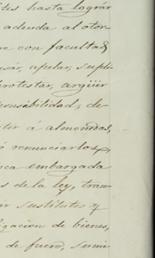 tes hasta lograr
adeuda al otor-
re con facultad
sar, apelar, supli-
protestar, argüir
ponsabilidad, de-
ter á almonedas,
ó renunciarlos,
ca embargada
s de la ley, tran
r sustitutos y
ligacion de bienes,
de fuero, sumi